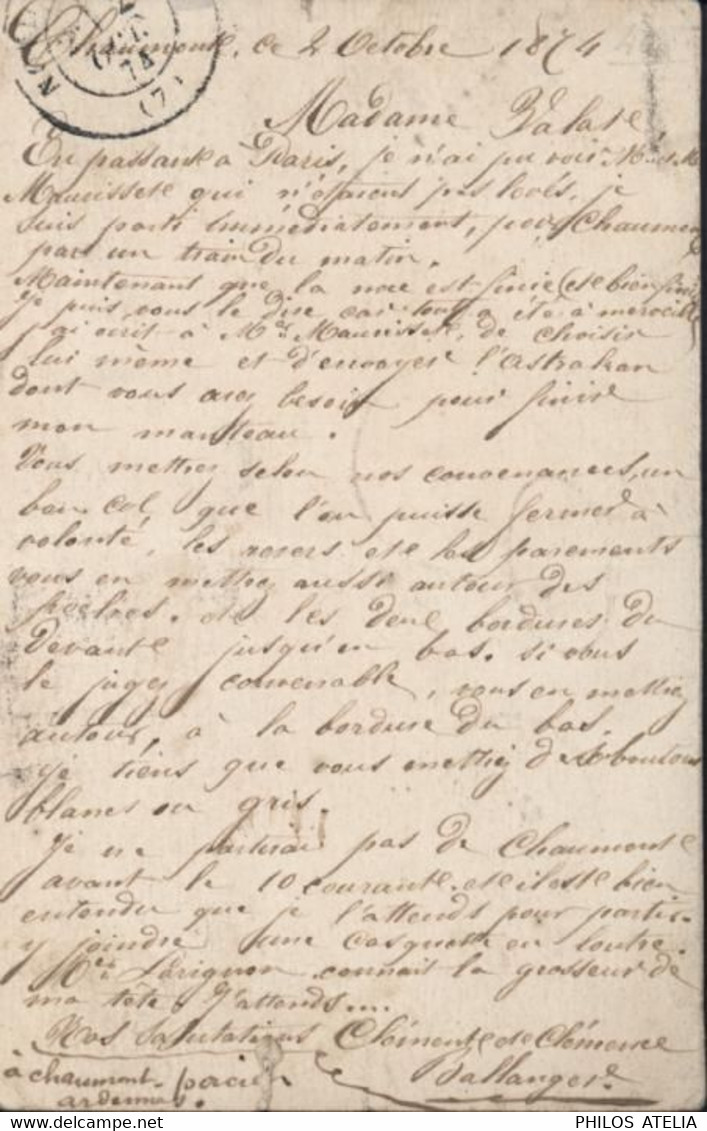 Chaumont, ce 2 Octobre 1874
OCT. 74 (7)
Madame
En passant à Paris, je n'ai pu voir
Maurisset qui n'étaient pas levés, je
suis parti immédiatement, pour Chaumont
par un train du matin.
Maintenant que la noce est finie (et bien finie)
Je puis vous le dire car tout a été à merveille
j'ai écrit à Mr Maurisset, de choisir
lui même et d'envoyer l'astrakan
dont vous avez besoin pour finir
mon manteau.
Vous mettrez selon vos convenances, un
bon col que l'on puisse fermer à
volonté, les revers et les parements
vous en mettrez aussi autour des
poches. et les deux bordures du
devant jusqu'en bas. si vous
le jugez convenable, vous en mettrez
autour, à la bordure du bas.
Je tiens que vous mettiez boutons
blancs ou gris.
Je ne partirai pas de Chaumont
avant le 10 courant. et il est bien
entendu que je l'attends pour partir.
y joindre une casquette en loutre.
connait la grosseur de
ma tête. J'attends....
Nos salutations Clément et Clémence
Ballanger
à chaumont-porcien
ardennes.
PHILOS ATELIA